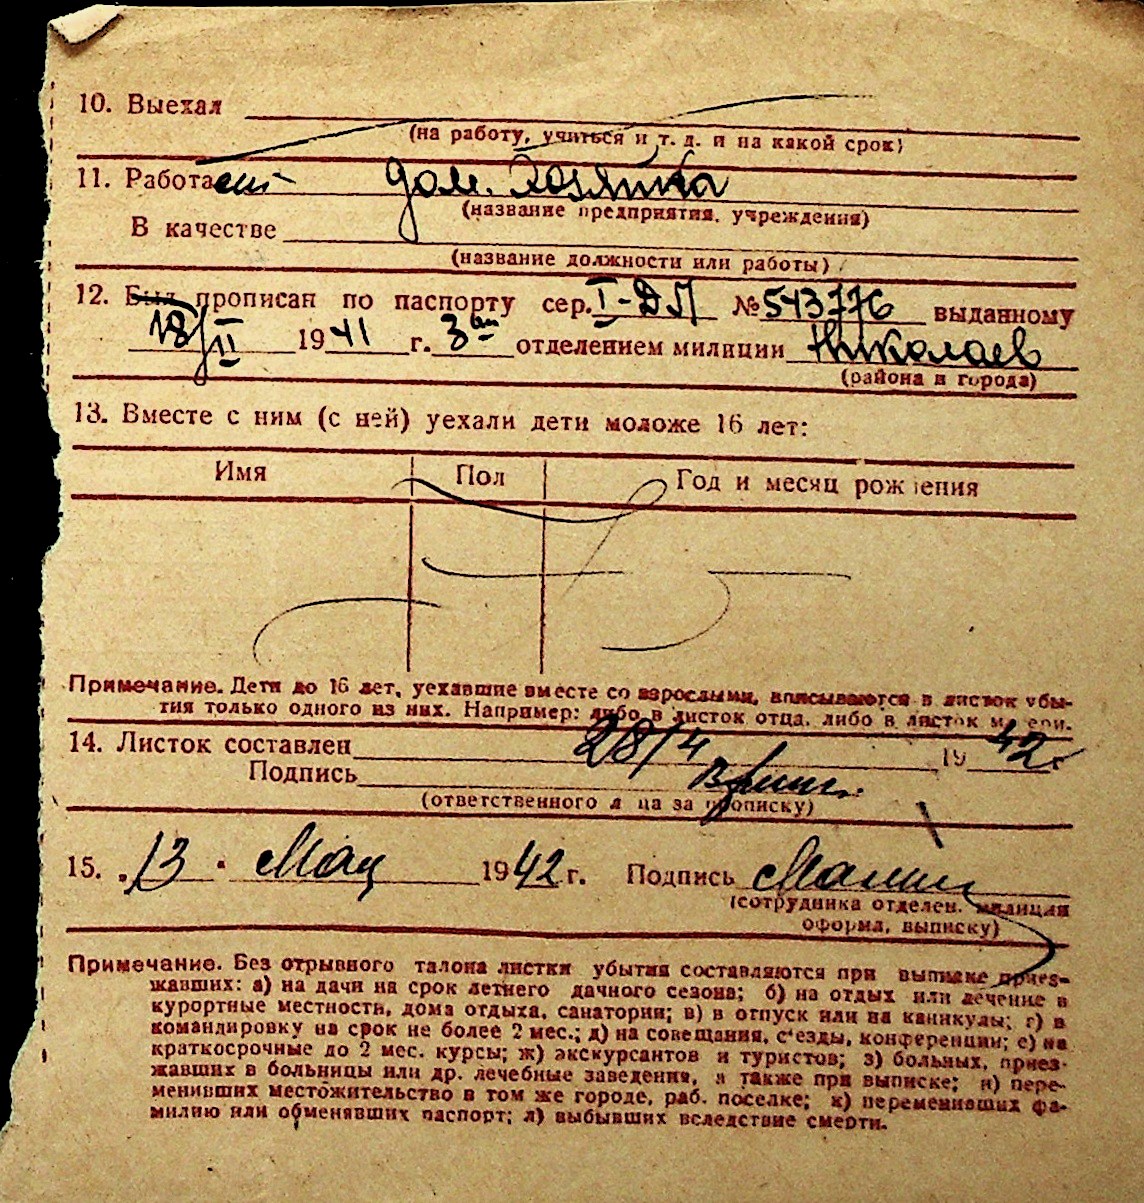 10. Выехал
(на работу, учиться и т. д. и на какой срок)
11. Работает дом. хозяйка
(название предприятия, учреждения)
В качестве
(название должности или работы)
12. Был прописан по паспорту сер. I-ДЛ № 543776 выданному
18/II 1941 г. 3им отделением милиции Николаев
(района и города)
13. Вместе с ним (с ней) уехали дети моложе 16 лет:
Имя Пол Год и месяц рождения
Примечание. Дети до 16 лет, уехавшие вместе со взрослыми, вписываются в листок убы-
тия только одного из них. Например: либо в листок отца, либо в листок матери.
14. Листок составлен 28/4 1942 г.
Подпись
(ответственного лица за прописку)
15. „13" Мая 1942 г. Подпись
(сотрудника отделен. милиции
оформл. выписку)
Примечание. Без отрывного талона листки убытия составляются при выписке приез-
жавших: а) на дачи на срок летнего дачного сезона; б) на отдых или лечение в
курортные местности, дома отдыха, санатории; в) в отпуск или на каникулы; г) в
командировку на срок не более 2 мес.; д) на совещания, с'езды, конференции; е) на
краткосрочные до 2 мес. курсы; ж) экскурсантов и туристов; з) больных, приез-
жавших в больницы или др. лечебные заведения, а также при выписке; и) пере-
менивших местожительство в том же городе, раб. поселке; к) переменивших фа-
милию или обменявших паспорт; л) выбывших вследствие смерти.